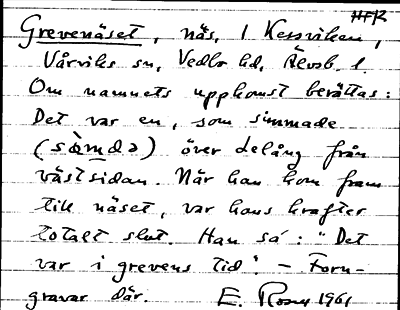 HFR
Grevenäset, näs, i Kessviken,
Vårviks sn, Vedbo hd, Älvsb. l.
Om namnets uppkomst berättas:
Det var en, som simmade
(sømdə) över Lelång från
västsidan. När han kom fram
till näset, var hans krafter
totalt slut. Han sa: "Det
var i grevens tid". - Forn-
gravar där. E. Rosen 1961